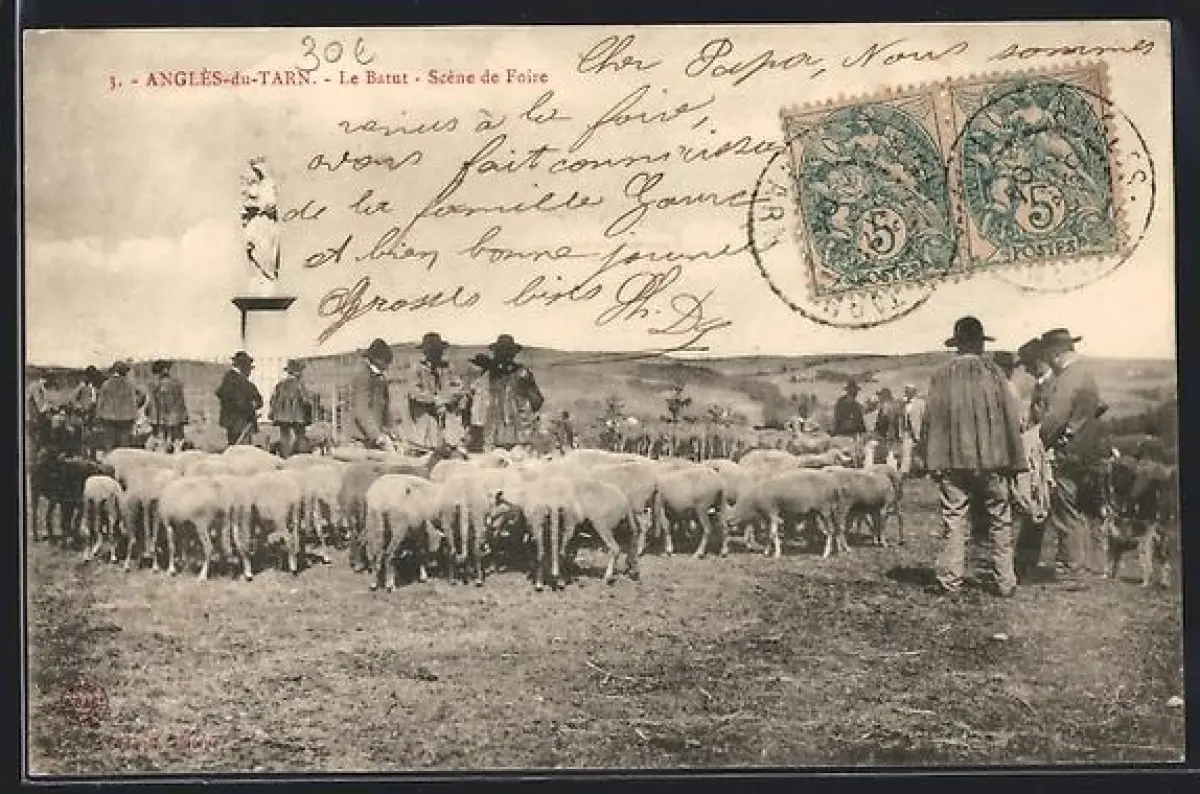 30€
3. - ANGLÈS-du-TARN. - Le Batut - Scène de Foire
Cher Papa, Nous sommes
venus à la foire,
avons fait connaissa
de la famille
et bien bonne journé
Grosses bises
5
POSTES
5
POSTES